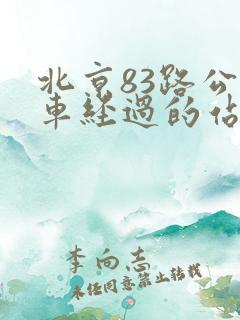 北京83路公
車経過的佔
李向志
未経同意禁止转载